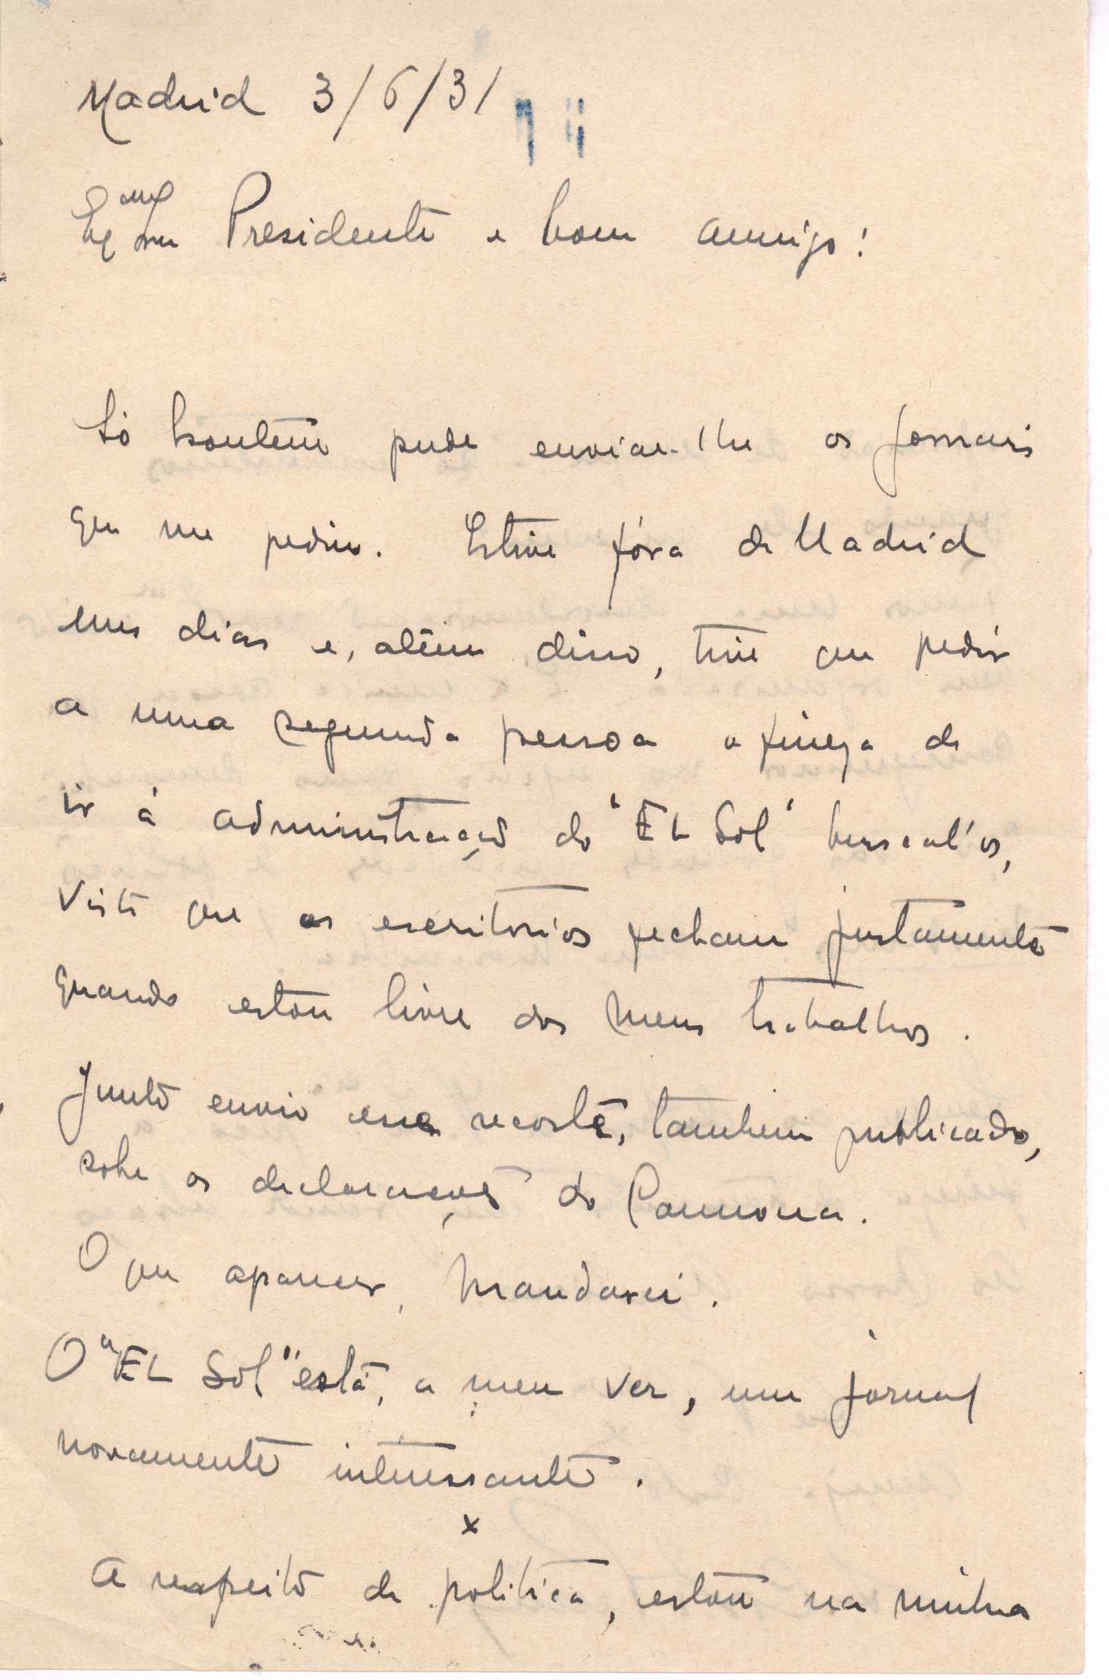 Madrid 3/6/31
Presidente e bom amigo!
Só hontem pude enviar-lhe os jornais
que me pediu. Estive fóra de Madrid
uns dias e, além disso, tive que pedir
a uma segunda pessoa a fineza de
ir á administração do "EL Sol" buscal'os,
visto que os escritorios fecham justamente
quando estou livre dos meus trabalhos.
Junto envio esse recorte, tambem publicado,
sobre as declarações do Carmona.
O que aparecer, mandarei.
O "EL Sol" está, a meu ver, um jornal
novamente interessante.
x
A respeito de politica, estou na minha